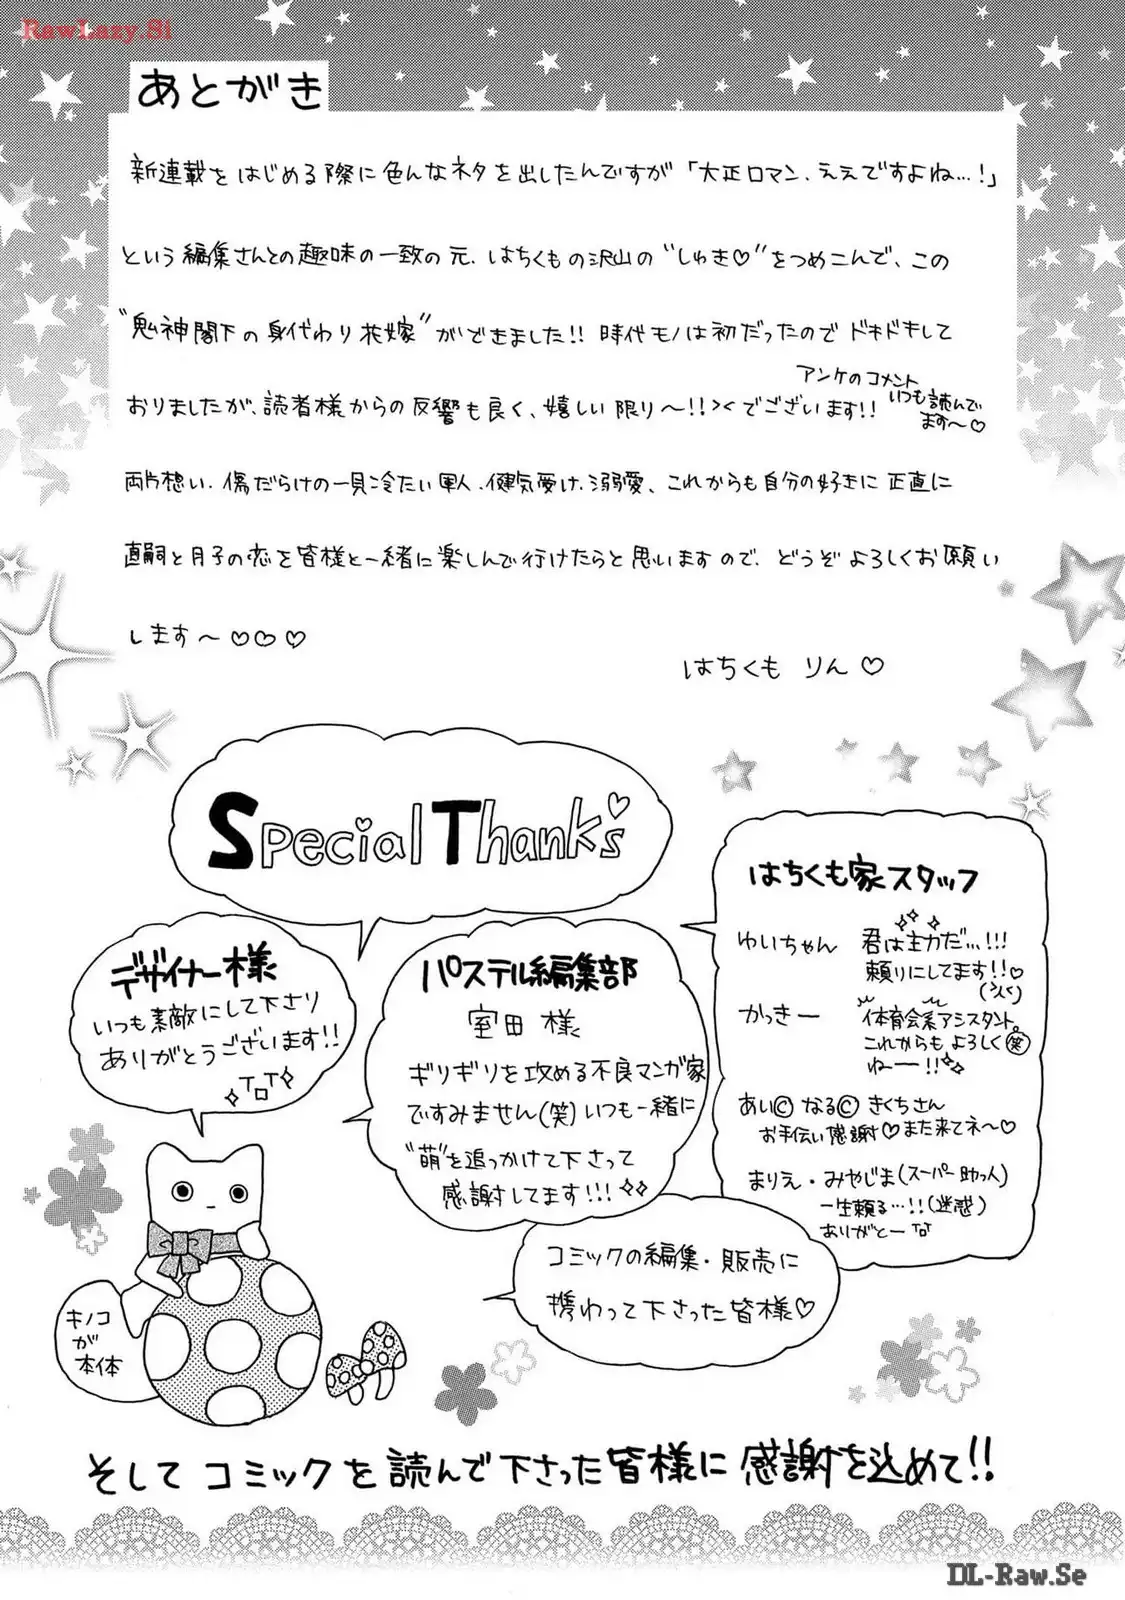 RawLazy.Si
あとがき
新連載をはじめる際に色んなネタを出したんですが「大正ロマン、ええですよね…！」
という編集さんとの趣味の一致の元、はちくもの沢山の“しゅき♡”をつめこんで、この
“鬼神閣下の身代わり花嫁”ができました!! 時代モノは初だったのでドキドキして
おりましたが、読者様からの反響も良く、嬉しい限り〜!!><でございます!!
アンケのコメント
いつも読んで
ます〜♡
両片想い、傷だらけの一見冷たい軍人、健気受け、溺愛、これからも自分の好きに正直に
直嗣と月子の恋を皆様と一緒に楽しんで行けたらと思いますので、どうぞよろしくお願い
します〜♡♡♡
はちくも りん♡
Special Thanks
デザイナー様
いつも素敵にして下さり
ありがとうございます!!
パステル編集部
室田 様
ギリギリを攻める不良マンガ家
ですみません(笑)いつも一緒に
“萌”を追っかけて下さって
感謝してます!!!
はちくも家スタッフ
ゆいちゃん 君は主力だ…!!!
頼りにしてます!!♡
かっきー 体育会系アシスタント。
これからもよろしく㊗
ねー!!
あい© なる© きくちさん
お手伝い感謝♡また来てネ〜♡
まりえ・みやじま(スーパー助っ人)
一生頼る…!!(迷惑)
ありがとーTT
コミックの編集・販売に
携わって下さった皆様♡
キノコ
が
本体
そしてコミックを読んで下さった皆様に感謝を込めて!!
DL-Raw.Se